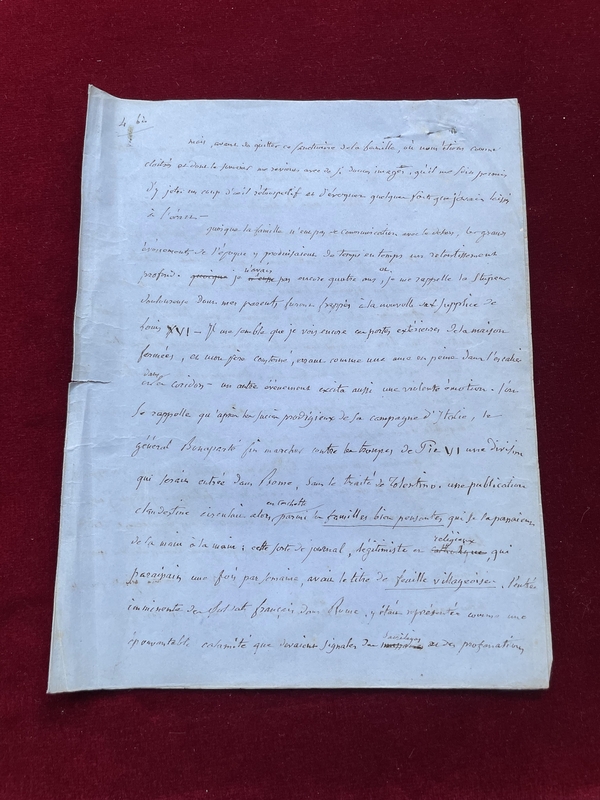 4 bis
mais, avant de quitter ce sanctuaire de la famille, où nous étions comme
cloîtrés et dont le souvenir me revient avec de si douces images, qu'il me soit permis
d'y jeter un coup d'œil rétrospectif et d'évoquer quelques faits que j'avais laissés
à l'écart —
quoique la famille n'eut pas de communication avec le dehors, les grands
événements de l'époque y produisaient de temps en temps un retentissement
profond. quoique je n'avais pas encore quatre ans, je me rappelle la stupeur
douloureuse dont mes parents furent frappés à la nouvelle du supplice de
Louis XVI — Il me semble que je vois encore les portes extérieures de la maison
fermées, et mon père consterné, errant comme une âme en peine dans l'escalier
et dans les corridors — un autre événement excita aussi une violente émotion. l'on
se rappelle qu'après les succès prodigieux de la campagne d'Italie, le
général Bonaparte fit marcher contre les troupes de Pie VI une division
qui serait entrée dans Rome, sans le traité de Tolentino. une publication
clandestine circulait alors en cachette parmi les familles bien pensantes qui se la passaient
de la main à la main ; cette sorte de journal, légitimiste et religieux qui
paraissait une fois par semaine, avait le titre de feuille villageoise. l'entrée
imminente des soldats français dans Rome, y était représentée comme une
épouvantable calamité que devaient signaler des sacrilèges et des profanations